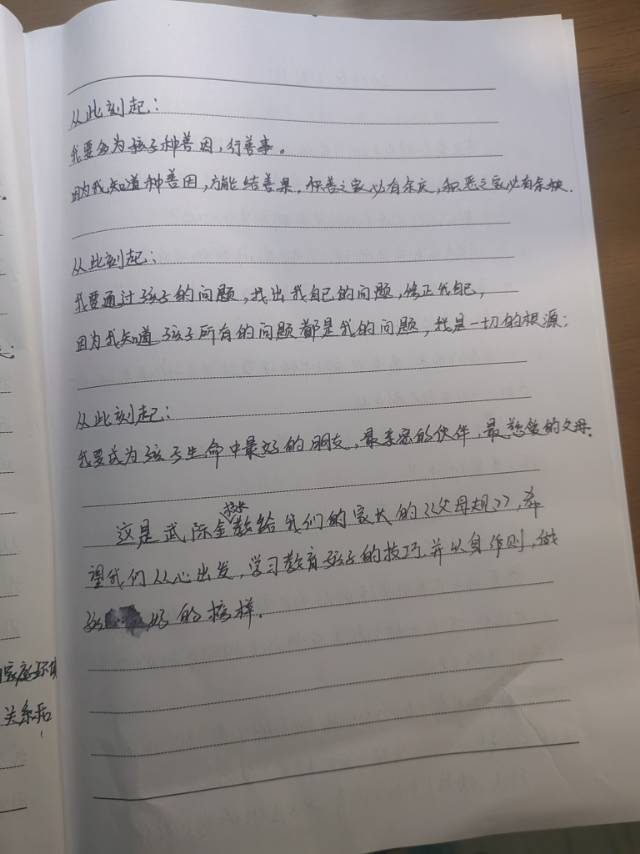 从此刻起：
我要多为孩子种善因，行善事。
因为我知道种善因，方能结善果，积善之家必有余庆，积恶之家必有余殃.
从此刻起：
我要通过孩子的问题，找出我自己的问题，修正我自己，
因为我知道孩子所有的问题都是我的问题，我是一切的根源；
从此刻起：
我要成为孩子生命中最好的朋友，最亲密的伙伴，最慈爱的父母.
这是武际金教给我们的家长的《父母规》，希
望我们从心出发，学习教育孩子的技巧.并以身作则，做
好的榜样.
家庭环境
关系和